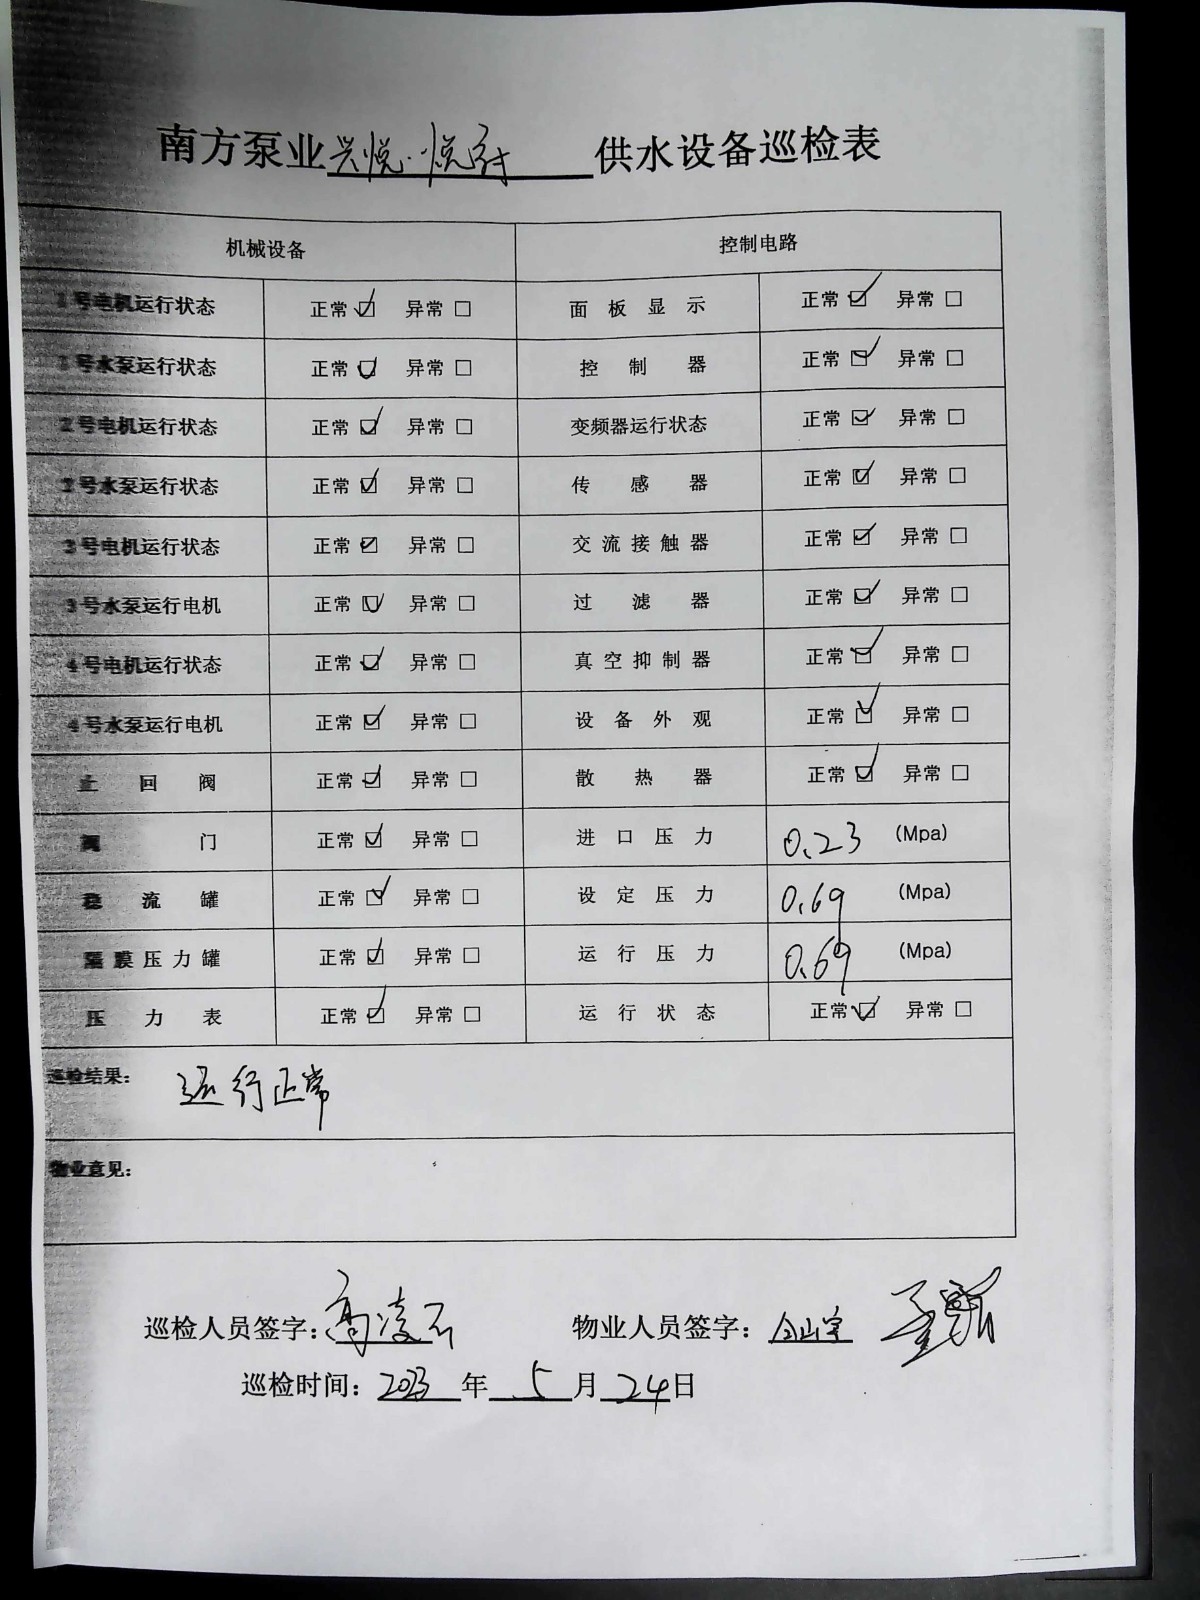 南方泵业兴悦·悦府供水设备巡检表
机械设备 控制电路
1号电机运行状态 正常☑ 异常□ 面板显示 正常☑ 异常□
1号水泵运行状态 正常☑ 异常□ 控制器 正常☑ 异常□
2号电机运行状态 正常☑ 异常□ 变频器运行状态 正常☑ 异常□
2号水泵运行状态 正常☑ 异常□ 传感器 正常☑ 异常□
3号电机运行状态 正常☑ 异常□ 交流接触器 正常☑ 异常□
3号水泵运行电机 正常☑ 异常□ 过滤器 正常☑ 异常□
4号电机运行状态 正常☑ 异常□ 真空抑制器 正常☑ 异常□
4号水泵运行电机 正常☑ 异常□ 设备外观 正常☑ 异常□
止回阀 正常☑ 异常□ 散热器 正常☑ 异常□
阀门 正常☑ 异常□ 进口压力 0.23 (Mpa)
稳流罐 正常☑ 异常□ 设定压力 0.69 (Mpa)
隔膜压力罐 正常☑ 异常□ 运行压力 0.69 (Mpa)
压力表 正常☑ 异常□ 运行状态 正常☑ 异常□
巡检结果: 运行正常
物业意见:
巡检人员签字:高凌石 物业人员签字:
巡检时间:2023年5月24日